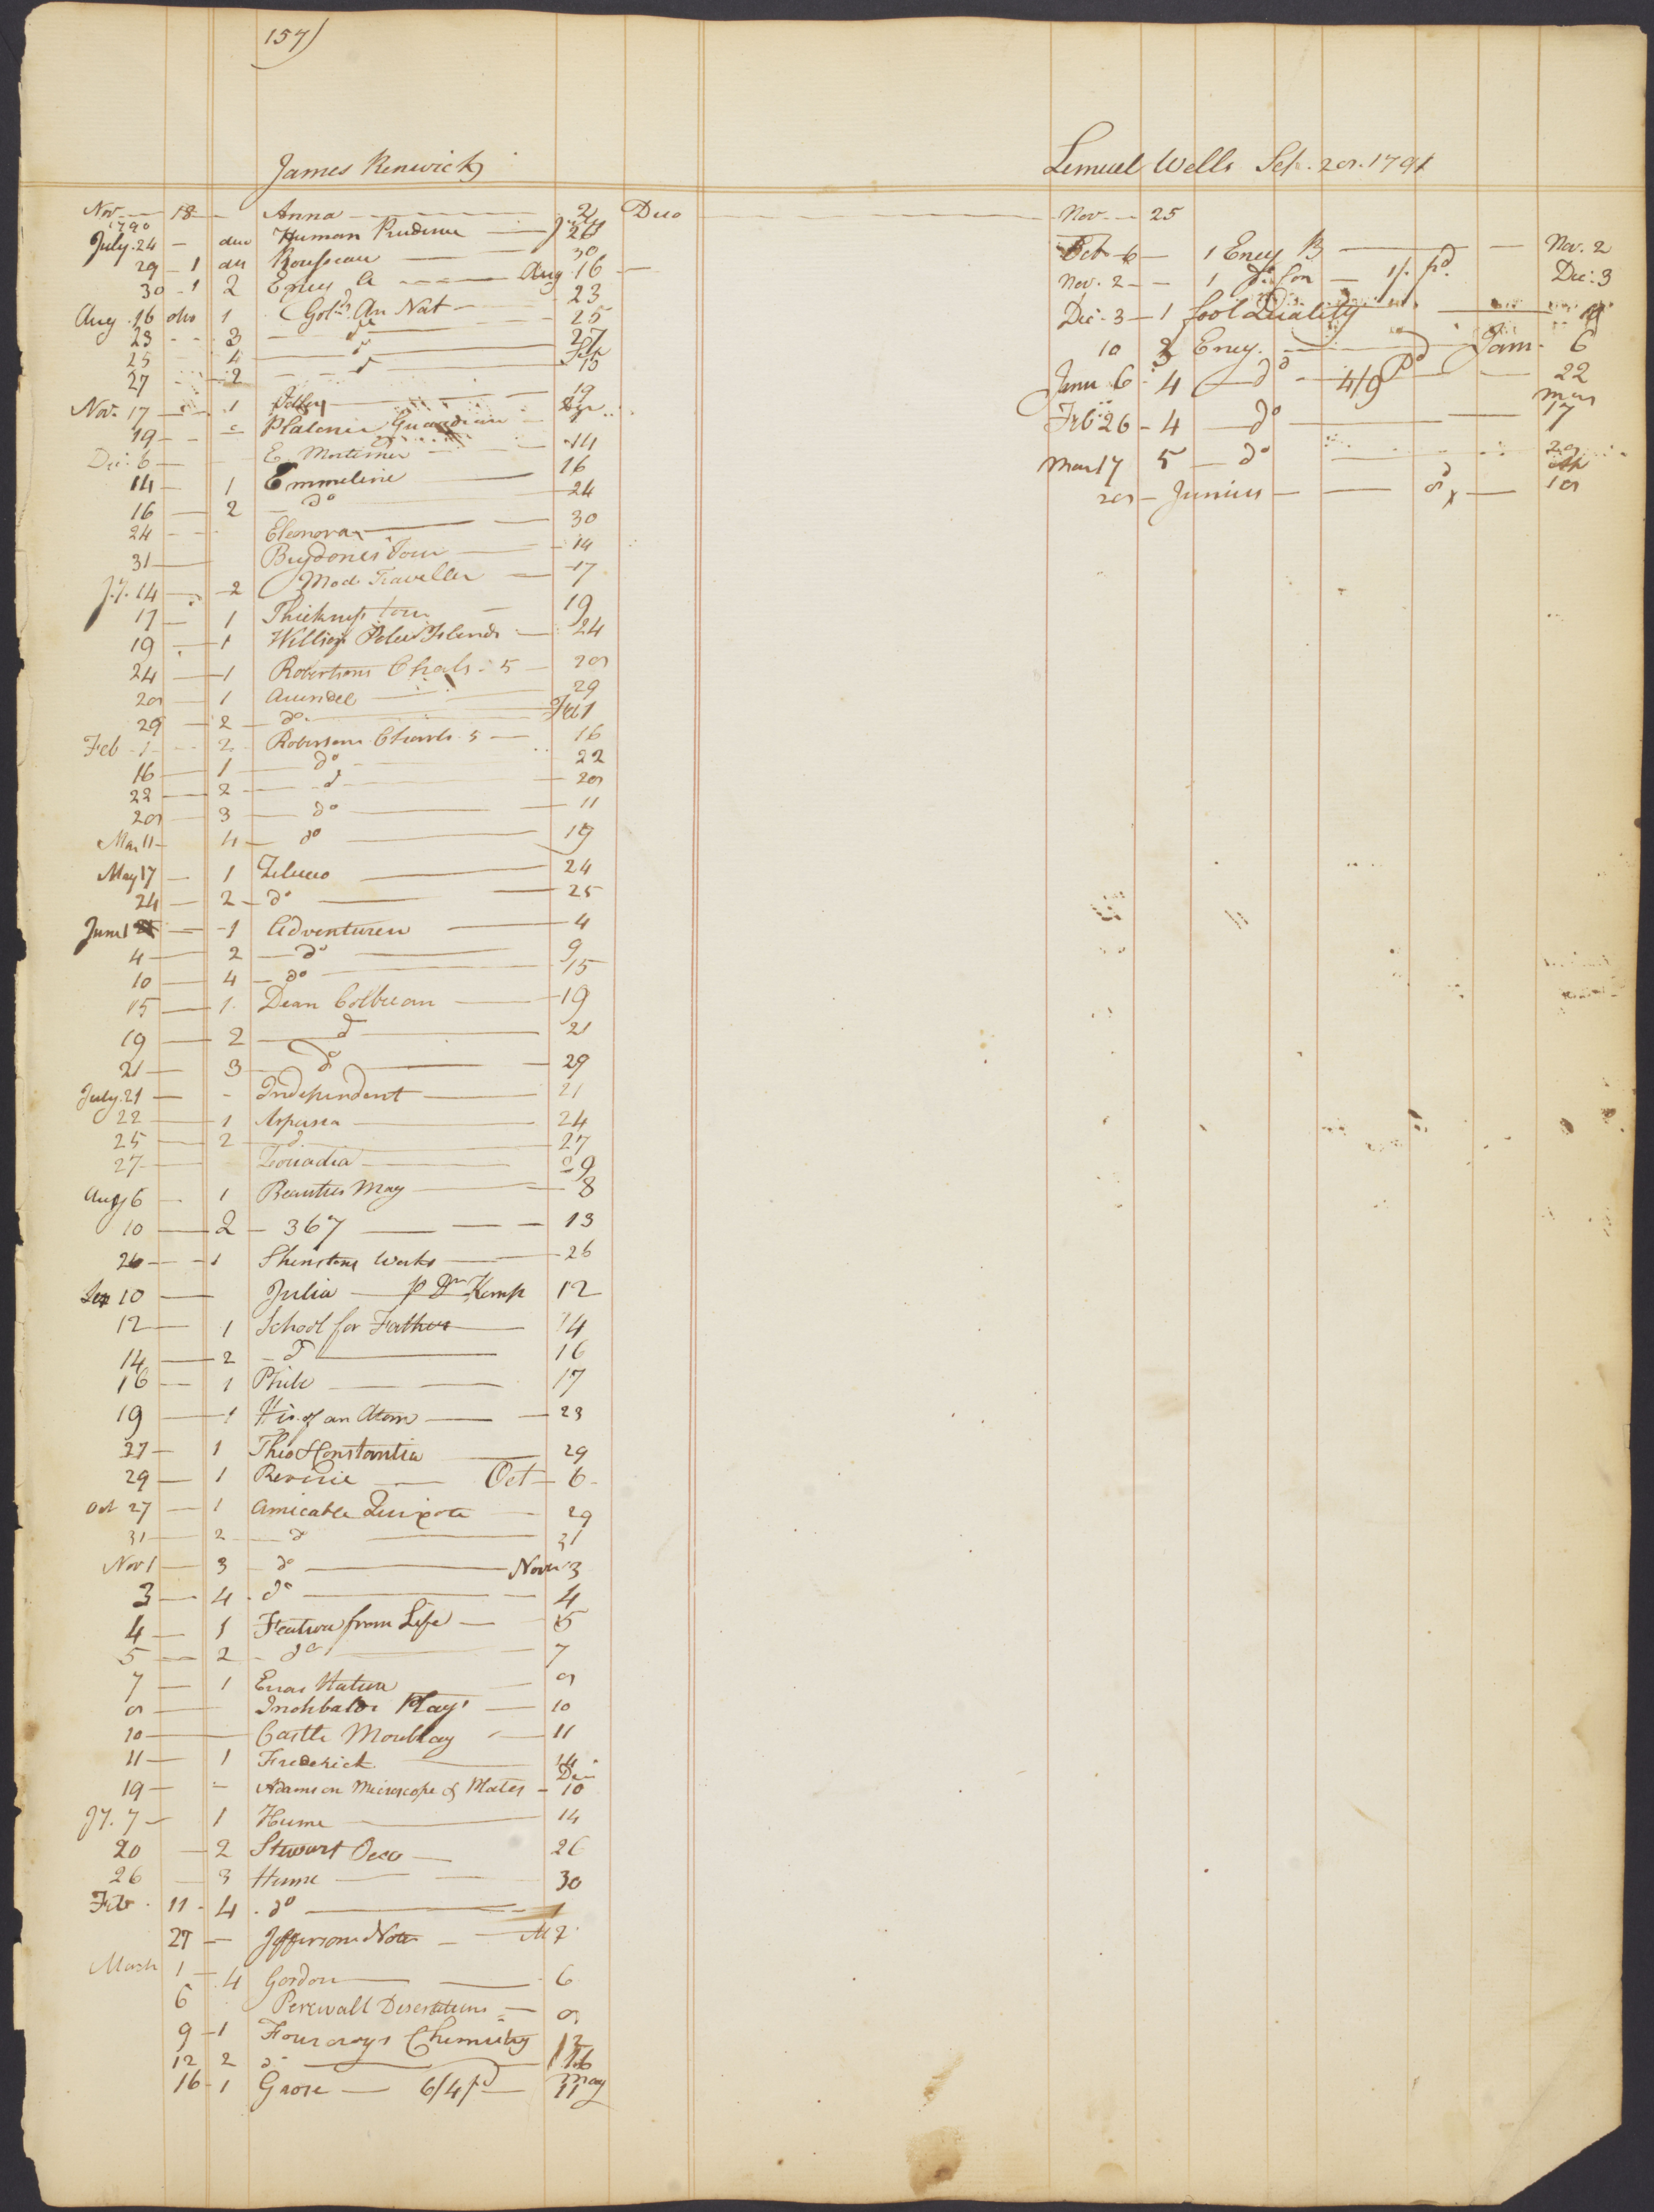 157)
James Renwick
Nov 18 Anna 2 Duo
1790
July 24 duo Human Prudence July 26
29 1 Rousseau 30
30 1 2 Ency A Aug 16
Aug 16 1 Gol.s An Nat 23
23 3 do 25
25 4 do 27
27 2 do Sep 15
Nov. 17 1 19
19 Platonic Guardian
Dec. 6 E. Mortimer 14
14 1 Emmeline 16
16 2 do 24
24 Elenora 30
31 Brydones Tour 14
Jy. 14 2 Mod Traveller 17
17 1 Thickness tour 19
19 1 Wilsons Pelew Islands 24
24 1 Robertsons Chals 5 28
28 1 Arundel 29
29 2 do Feb 1
Feb 1 2 Robersons Charls 5 16
16 1 do 22
22 2 do 28
28 3 do 11
Mar 11 4 do 19
May 17 1 Zeluco 24
24 2 do 25
June 1 1 Adventuren 4
4 2 do 9
10 4 do 15
15 1 Dean Colbrean 19
19 2 do 21
21 3 do 29
July 21 Independent 21
22 1 Aspasia 24
25 2 do 27
27 Louadia 29
Aug 6 1 Beauties Mag 8
10 2 367 13
26 1 Shenstons Works 26
Sep 10 Julia p Dr Kemp 12
12 1 School for Fathers 14
14 2 do 16
16 1 Phile 17
19 1 His. of an Atom 23
27 1 Theo & Constantia 29
29 1 Reverie Oct 6
Oct 27 1 Amicable Quixote 29
31 2 do 31
Nov 1 3 do Novr 3
3 4 do 4
4 1 Featurs from Life 5
5 2 do 7
7 1 Errors Nature 8
8 Inchbalds Plays 10
10 Castle Mowbray 11
11 1 Frederick 14
19 Adams on Microscope & Plates Dec 10
Jy. 7 1 Hume 14
20 2 Stewart Oeco 26
26 3 Hume 30
Feb. 11 4 do 1
27 Jeffersons Notes M 2
March 1 4 Gordon 6
6 Percivall Desertations 8
9 1 Fourcroys Chemistry 12
12 2 do 16
16 1 Grose 6/4 pd May 11
Lemuel Wells Sep. 28. 1791
Nov 25
Oct 6 1 Ency B Nov. 2
Nov. 2 1 do for 1/. pd. Dec. 3
Dec. 3 1 fool Quality 10
10 3 Ency. Jan. 6
Janu 6 4 do 4/9 pd 22
Feb 26 4 do Mar 17
Mar 17 5 do 28
28 Junius Ap 18